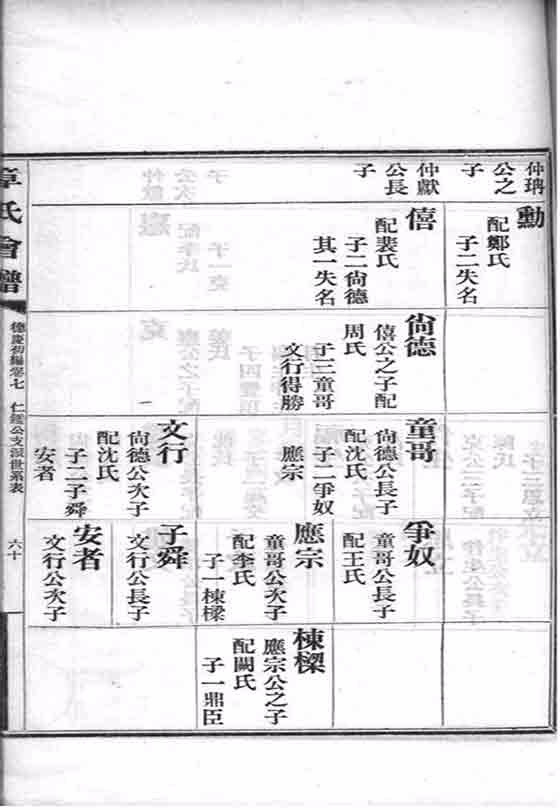 仲㻞
公之
子
勳
配鄭氏
子二失名
仲獻
公長
子
僖
配裴氏
子二尙德
其一失名
尙德
僖公之子配
周氏
子三童哥
文行得勝
童哥
尙德公長子
配沈氏
子二爭奴
應宗
文行
尙德公次子
配沈氏
子二子舜
安者
爭奴
童哥公長子
配王氏
應宗
童哥公次子
配李氏
子一棟樑
子舜
文行公長子
安者
文行公次子
棟樑
應宗公之子
配闕氏
子一鼎臣
章氏會譜
德慶初編卷七
仁鑑公支派世系表
六十